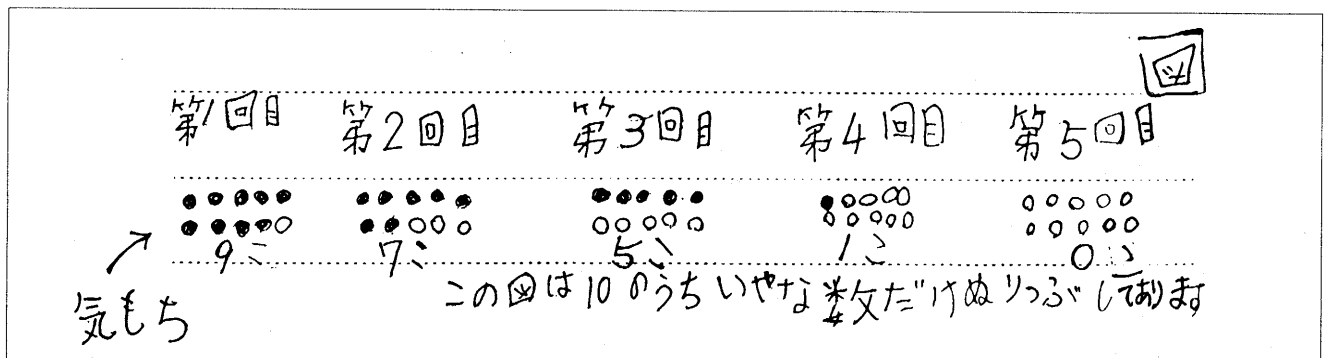 図
第1回目 第2回目 第3回目 第4回目 第5回目
9こ 7こ 5こ 1こ 0こ
気もち
この図は10のうちいやな数だけぬりつぶしてあります